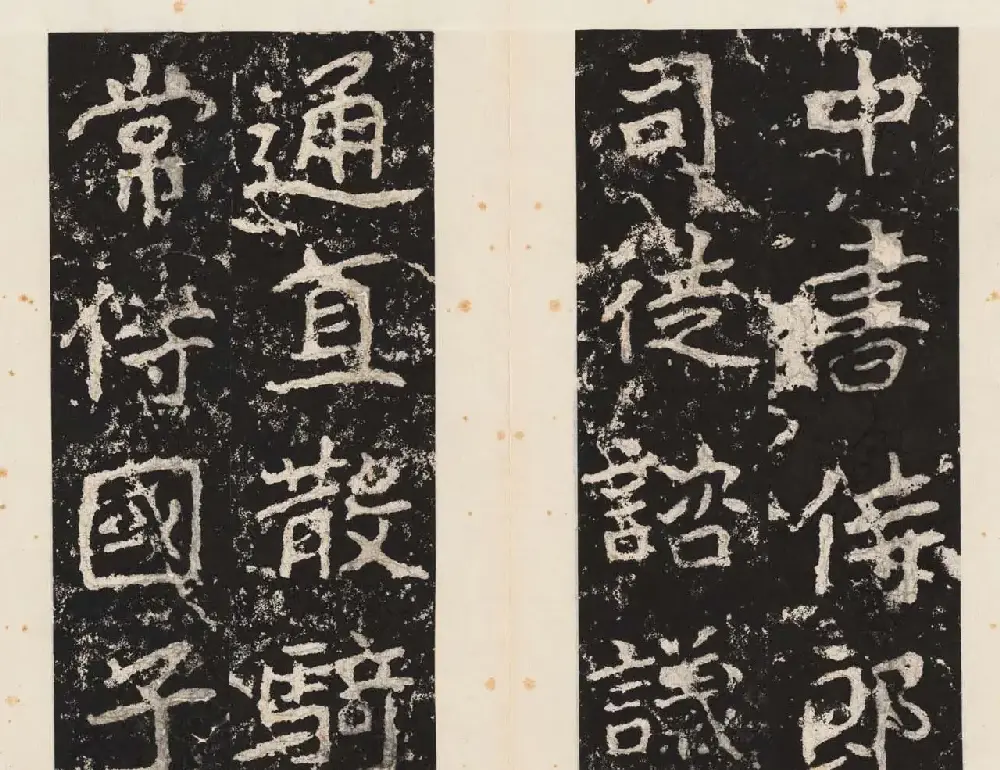 中書侍郎
司徒諮議
通直散騎
常侍國子